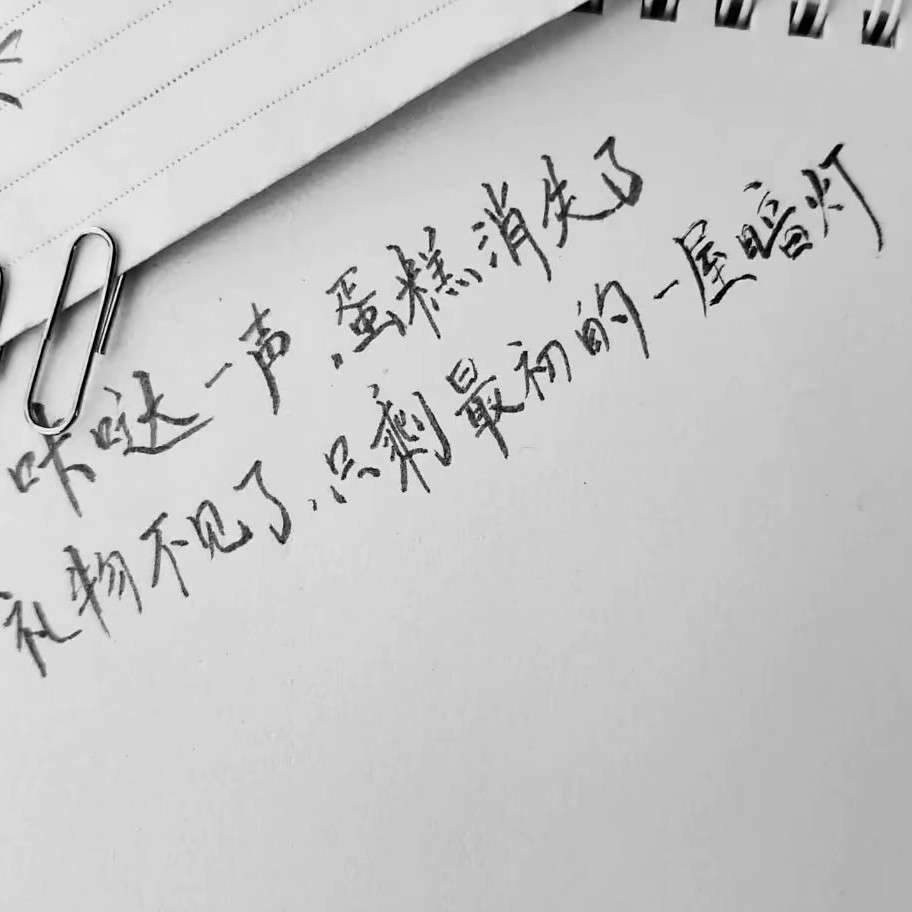 咔哒一声,蛋糕消失了
礼物不见了,只剩最初的一屋暗灯